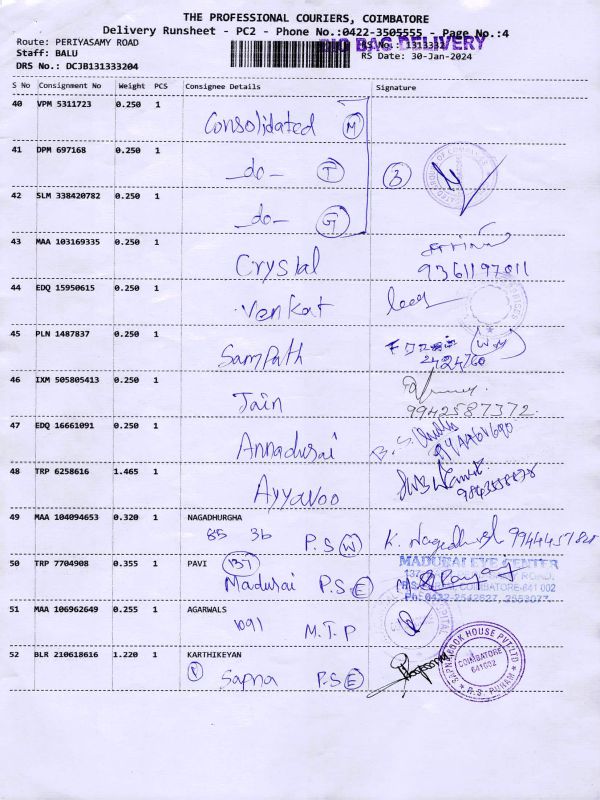 THE PROFESSIONAL COURIERS, COIMBATORE
Delivery Runsheet - PC2 - Phone No.:0422-3505555 - Page No.:4
BIG BAG DELIVERY
Route: PERIYASAMY ROAD
RS No.: 1313332
Staff: BALU
RS Date: 30-Jan-2024
DRS No.: DCJB131333204
S No Consignment No Weight PCS Consignee Details Signature
40 VPM 5311723 0.250 1
Consolidated M
41 DPM 697168 0.250 1
-do- T 3
42 SLM 338420782 0.250 1
-do- G
43 MAA 103169335 0.250 1
Crystal 9361197811
44 EDQ 15950615 0.250 1
Venkat
45 PLN 1487837 0.250 1
Sampath 2424760
46 IXM 505805413 0.250 1
Jain 9942587372
47 EDQ 16661091 0.250 1
Annadurai
48 TRP 6258616 1.465 1
Ayyavoo
49 MAA 104094653 0.320 1 NAGADHURGHA
85 36 P.S W
50 TRP 7704908 0.355 1 PAVI 137
Madurai P.S E
MADURAI EYE CENTER
COIMBATORE-641 002
51 MAA 106962649 0.255 1 AGARWALS
1091 M.T.P
52 BLR 210618616 1.220 1 KARTHIKEYAN
P Sapna P.S E
SAPNA BOOK HOUSE PVT LTD
COIMBATORE
641002
R.S. PURAM